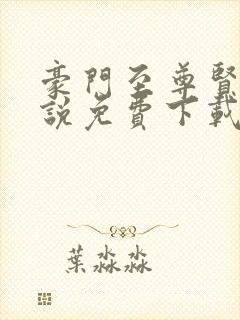 豪門至尊賢
說免費下載
葉淼淼